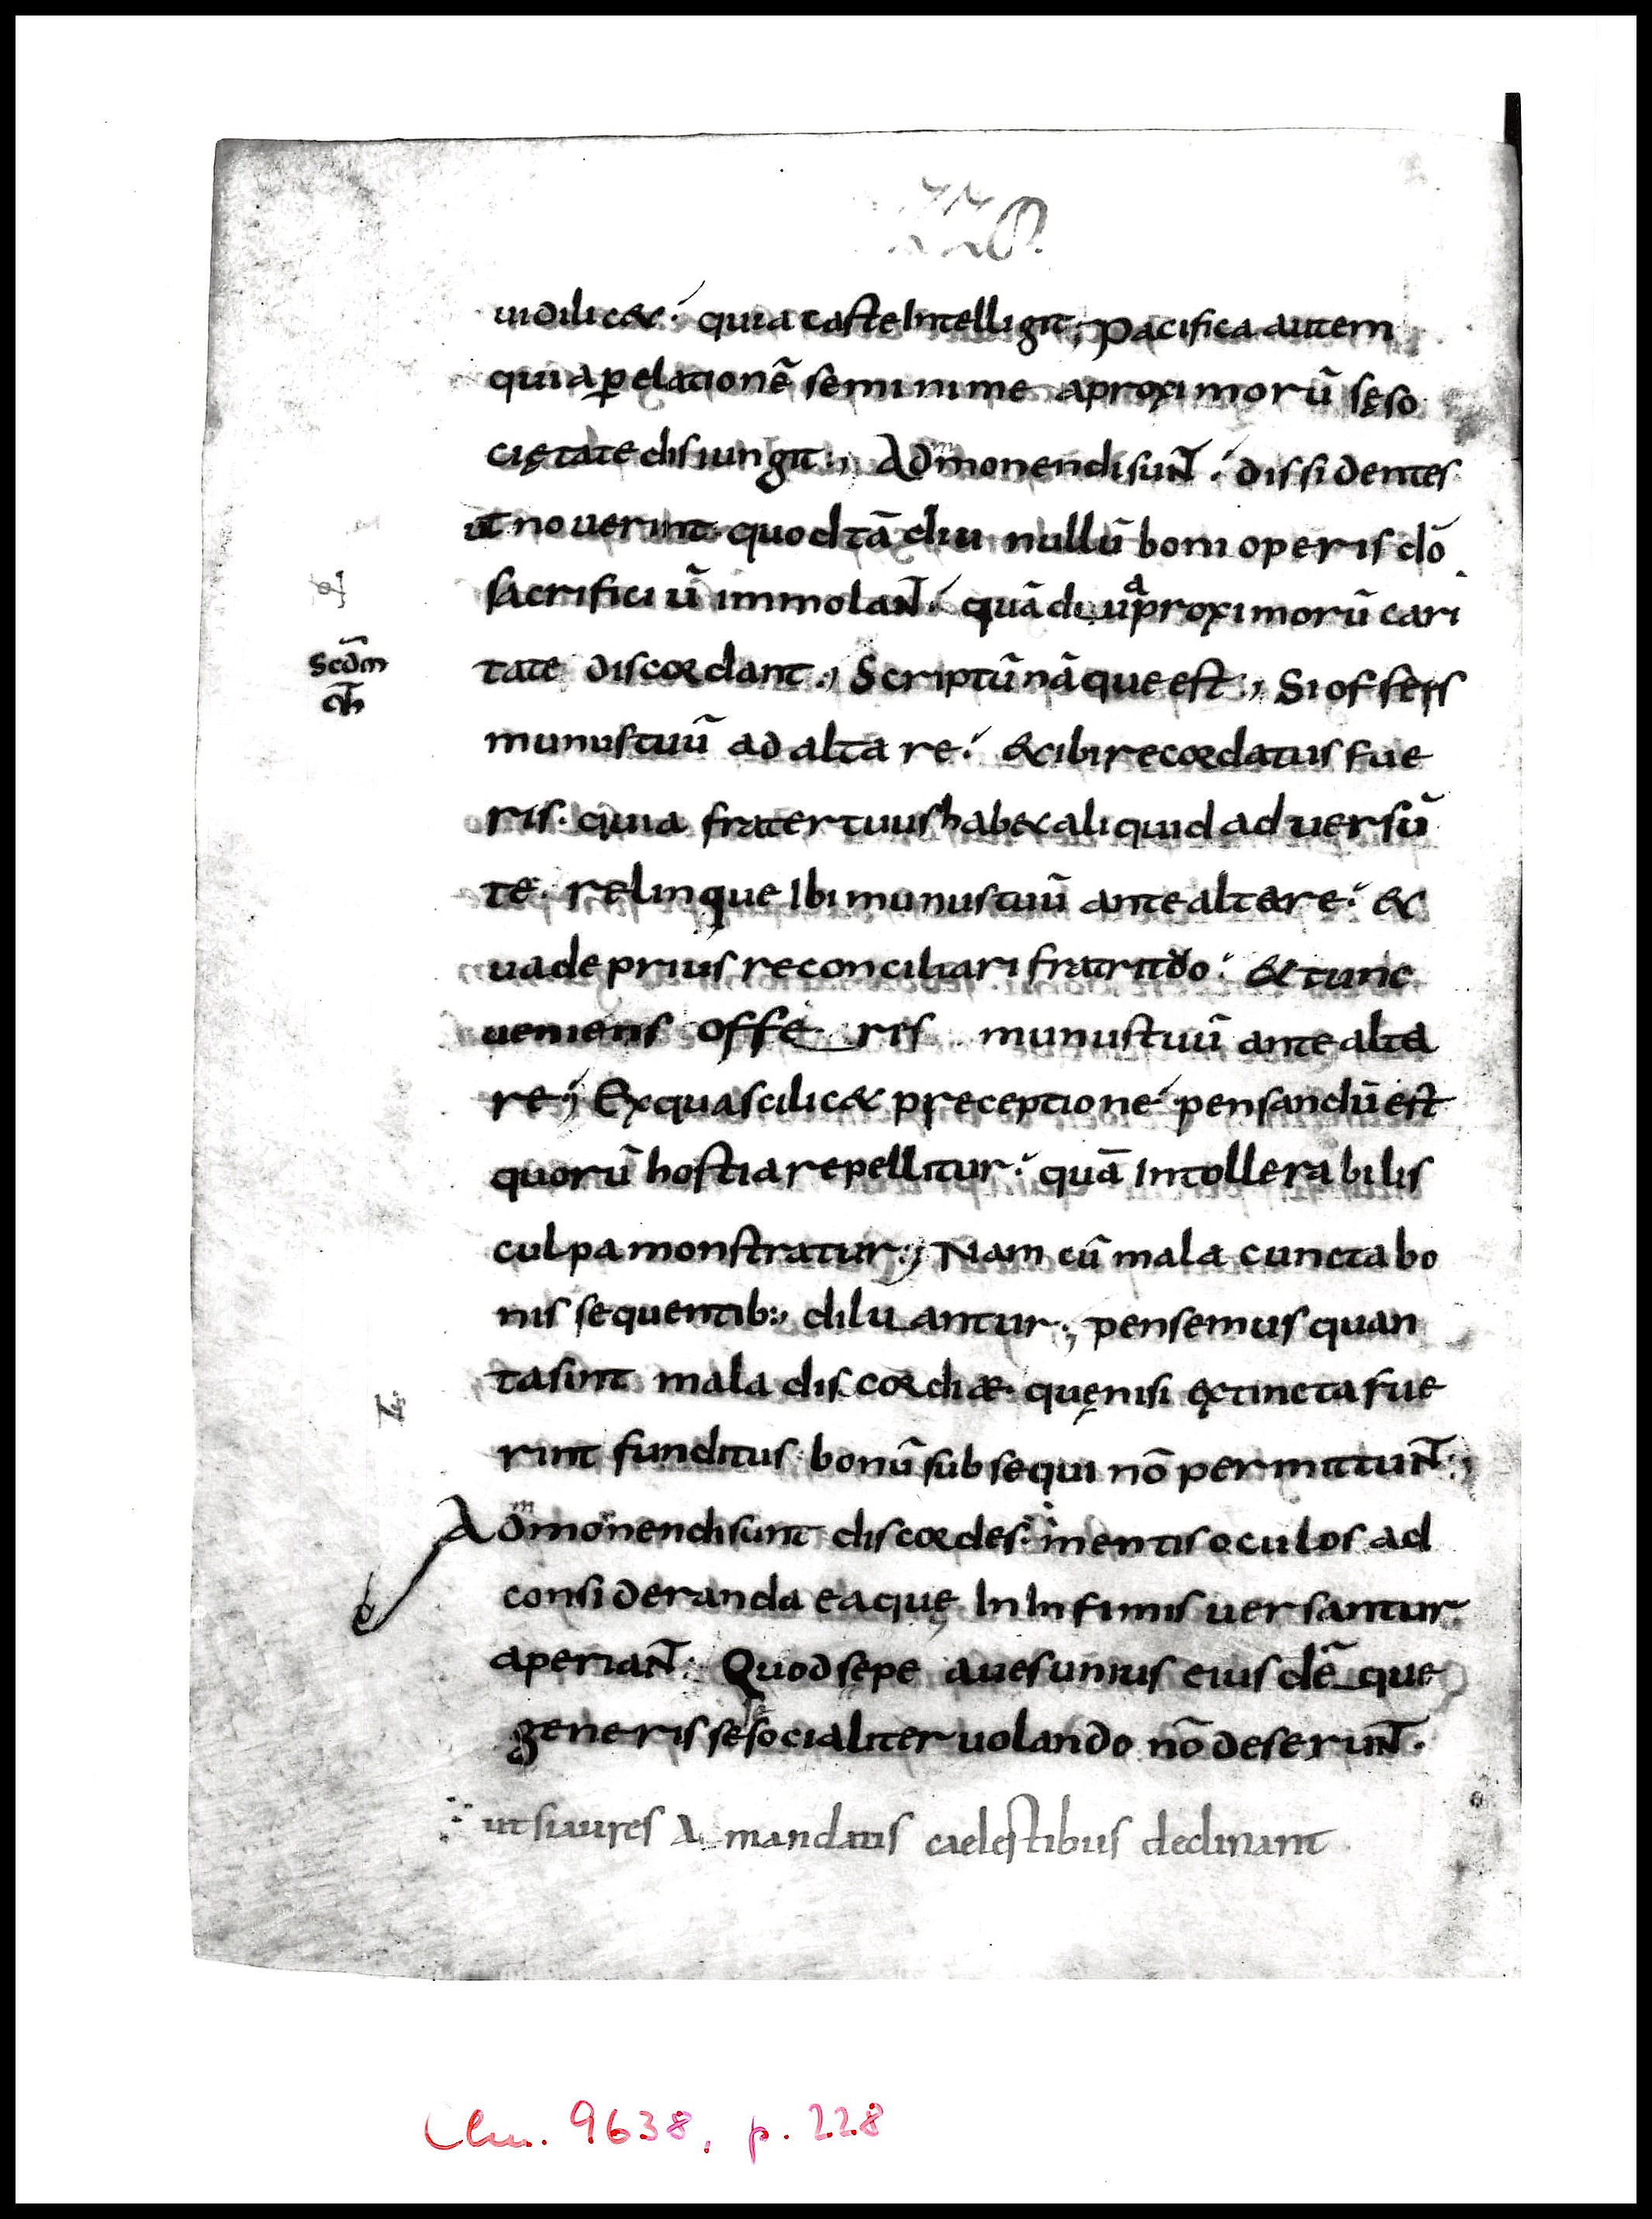 228.
uidilic&. quia caste Intelligit; pacifica autem
quia p̱ elationẽ seminime aproximorũ sęso
ciętate disiungit:, Admonendi sunt. dissidentes
ut nouerint quod tã diu nullũ boni operis dõ
sacrificiũ immolant. quã diu a proximorũ cari
tate discordant., Scriptũ nãque est:, Si offers
munus tuũ ad altare. & ibi recordatus fue
ris. quia frater tuus hab& aliquid aduersũ
te. relinque Ibi munus tuũ ante altare. &
uade prius reconciliari fratri tuo. & tunc
ueniens offe ris munus tuũ ante alta
re; Ex qua scilic& preceptione pensandũ est
quorũ hostia repellitur. quã Intollerabilis
culpa monstratur:, Nam cũ mala cuncta bo
nis sequentib:, diluantur; pensemus quan
ta sint mala discordiæ. quę nisi extincta fue
rint funditus bonũ subsequi nõ permittunt:,
Admonendi sunt discordes. mentis oculos ad
consideranda ea quę In Infimis uersantur
aperiant: Quod sępe aues unius eiusdẽque
generis sese socialiter uolando nõ deserunt.
ut si aures a mandatis caelestibus declinant
Scdm
Clm. 9638, p. 228